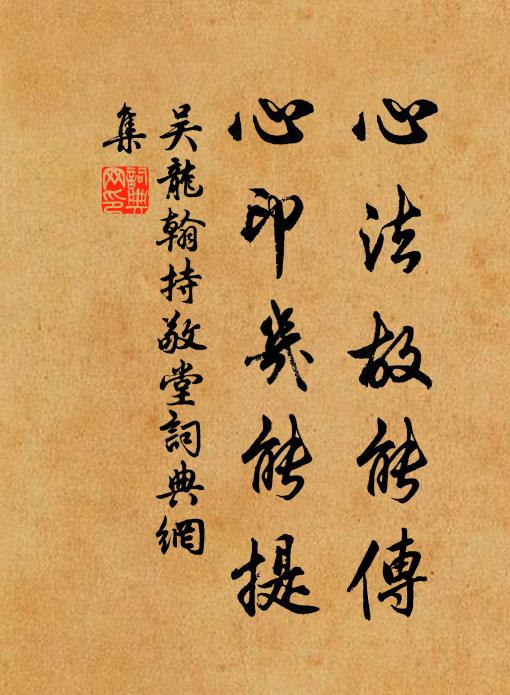 心法故能傳
心印幾能提
吴龍翰持敬堂詞典網
集
詞典
网印